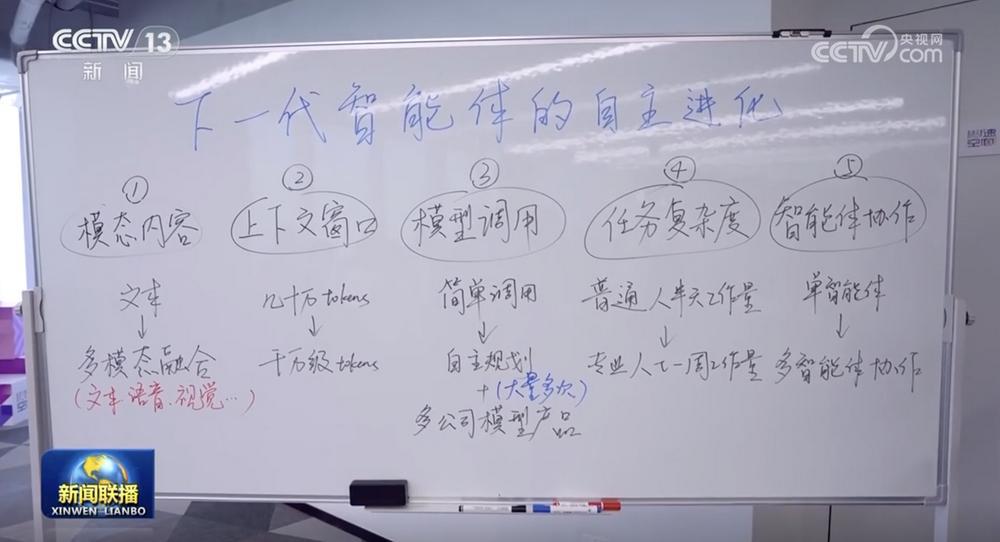 CCTV 13
新闻
CCTV 央视网
com
下一代智能体的自主进化
① ② ③ ④ ⑤
模态内容 上下文窗口 模型调用 任务复杂度 智能体协作
文本 几十万tokens 简单调用 普通人半天工作量 单智能体
↓ ↓ ↓ ↓ ↓
多模态融合 千万级tokens 自主规划 专业人士一周工作量 多智能体协作
(文本、语音、视觉…) +(大量多次)
多公司模型产品
新闻联播
XINWEN-LIANBO